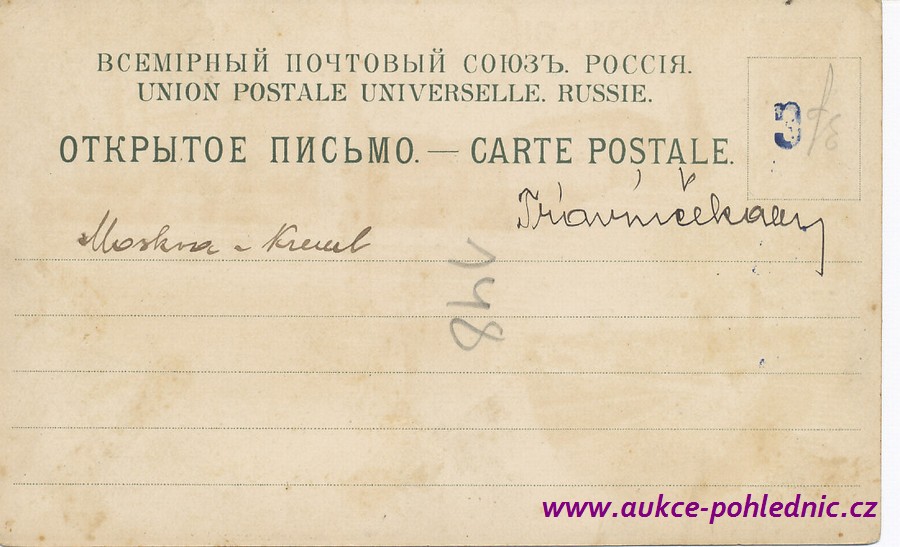 ВСЕМІРНЫЙ ПОЧТОВЫЙ СОЮЗЪ. РОССІЯ.
UNION POSTALE UNIVERSELLE. RUSSIE.
ОТКРЫТОЕ ПИСЬМО. — CARTE POSTALE.
3
Moskva - Kreml
148
www.aukce-pohlednic.cz